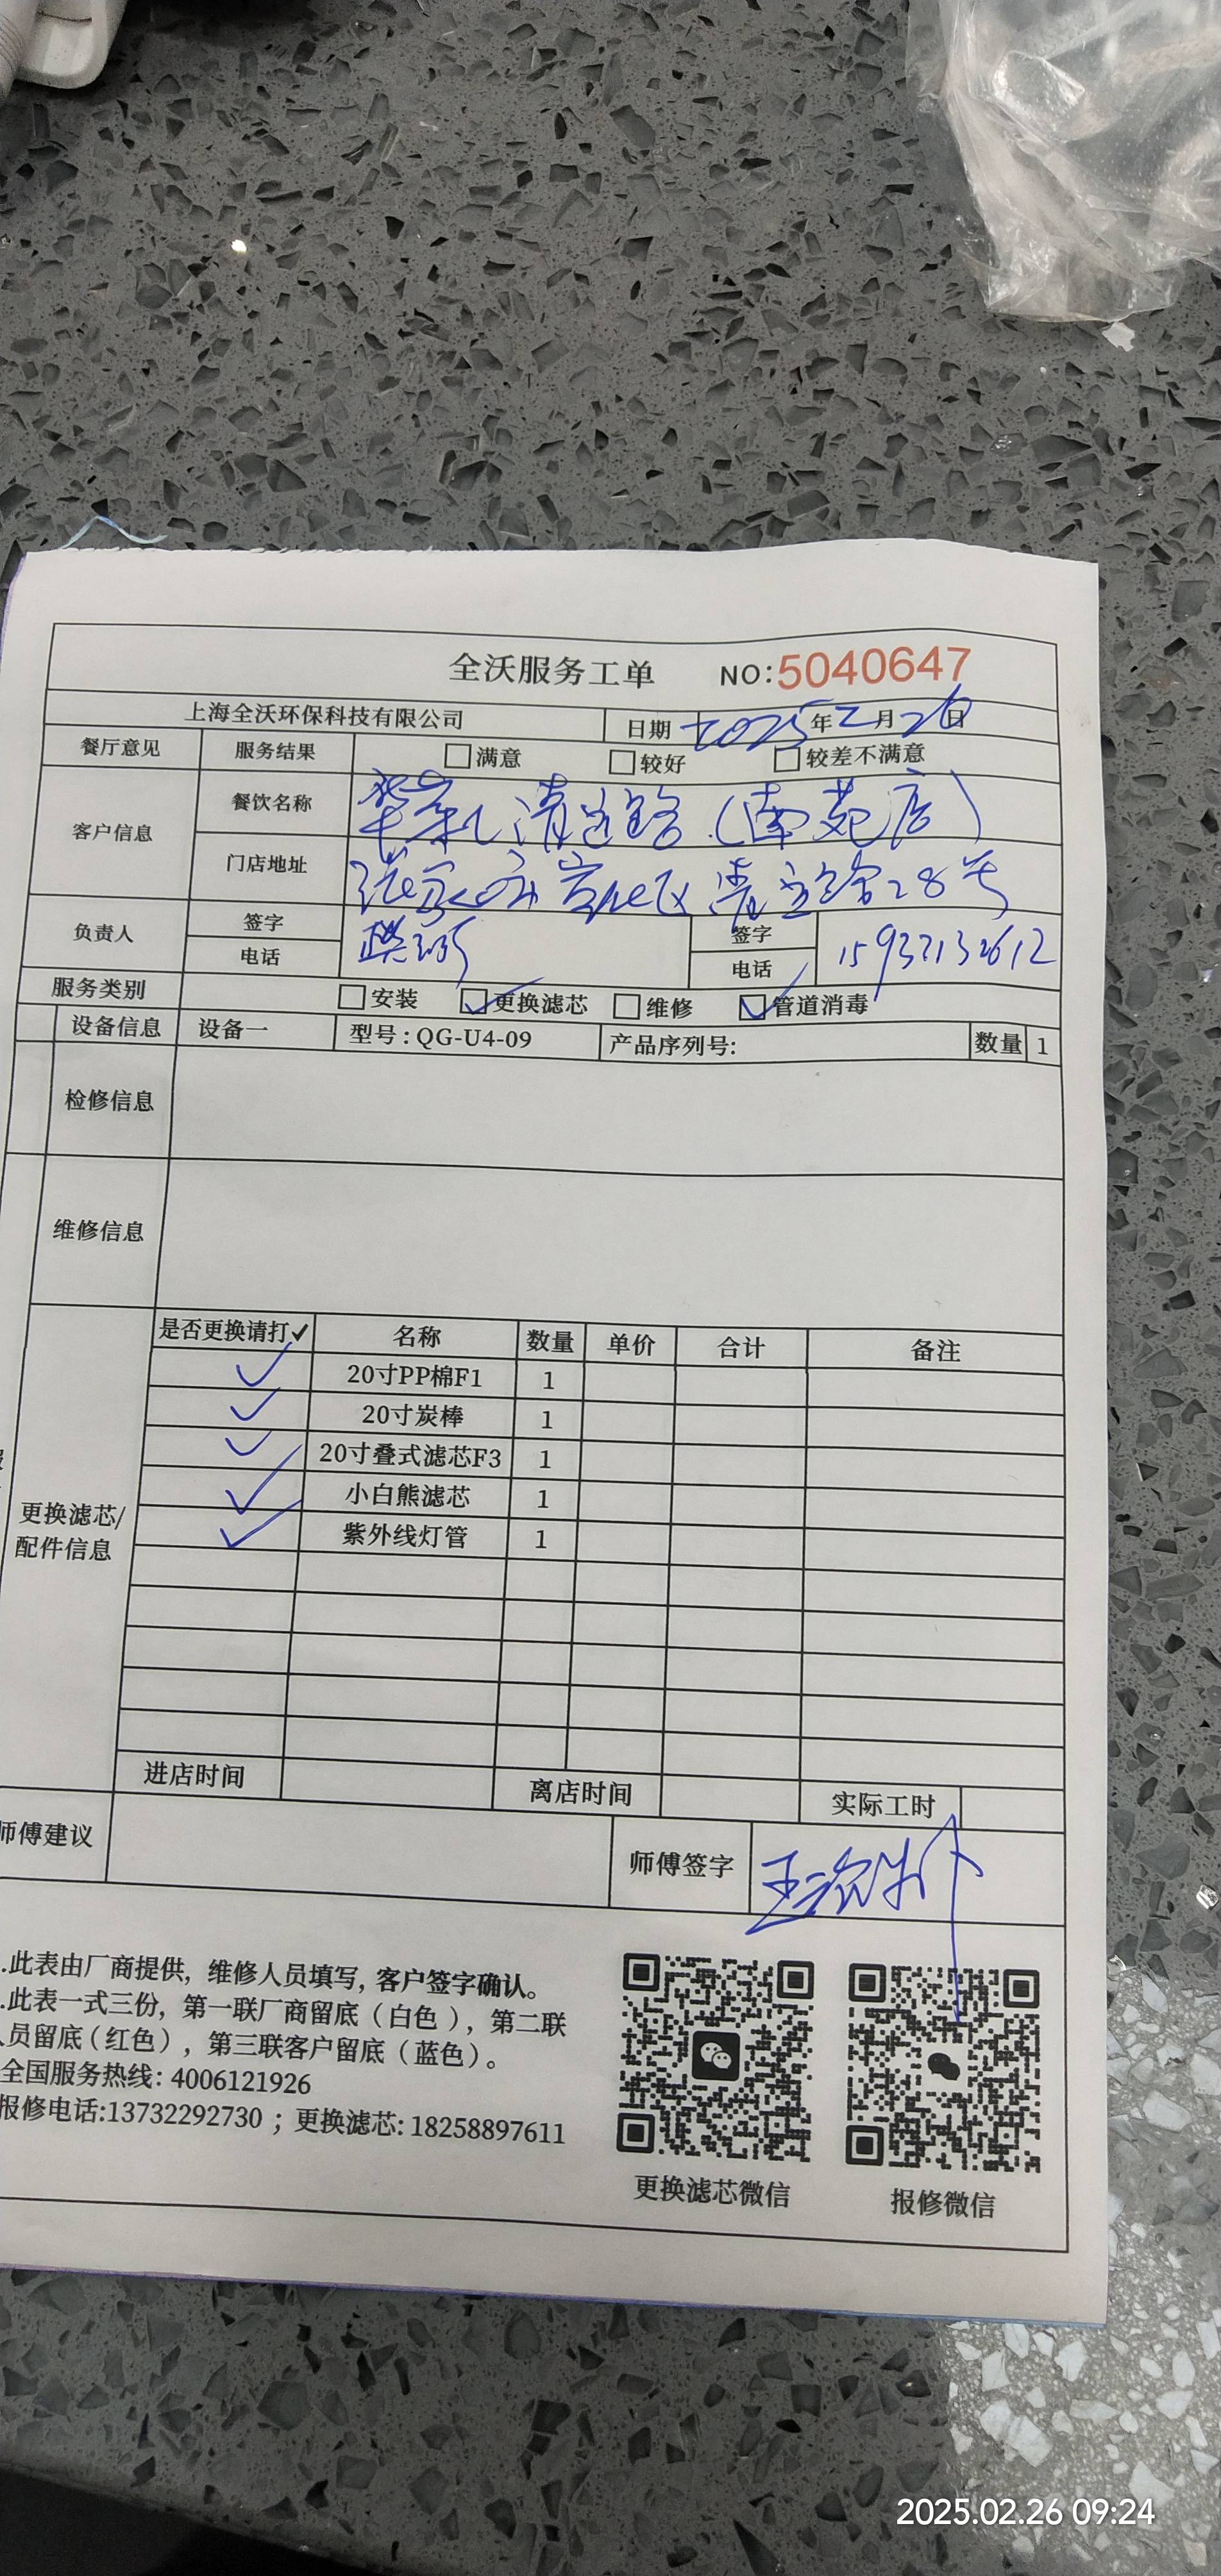 全沃服务工单 NO:5040647
上海全沃环保科技有限公司 日期 2025年2月26日
餐厅意见 服务结果 满意 较好 较差不满意
客户信息 餐饮名称 清 路(南苑店)
门店地址 28号
负责人 签字 签字
电话 电话
服务类别 安装 更换滤芯 维修 管道消毒
设备信息 设备一 型号:QG-U4-09 产品序列号: 数量 1
检修信息
维修信息
更换滤芯/
配件信息
是否更换请打✓ 名称 数量 单价 合计 备注
✓ 20寸PP棉F1 1
✓ 20寸炭棒 1
✓ 20寸叠式滤芯F3 1
✓ 小白熊滤芯 1
✓ 紫外线灯管 1
进店时间 离店时间 实际工时
师傅建议 师傅签字
.此表由厂商提供, 维修人员填写, 客户签字确认。
.此表一式三份, 第一联厂商留底(白色), 第二联
员留底(红色), 第三联客户留底(蓝色)。
全国服务热线: 4006121926
报修电话:13732292730 ; 更换滤芯: 18258897611
更换滤芯微信 报修微信
2025.02.26 09:24